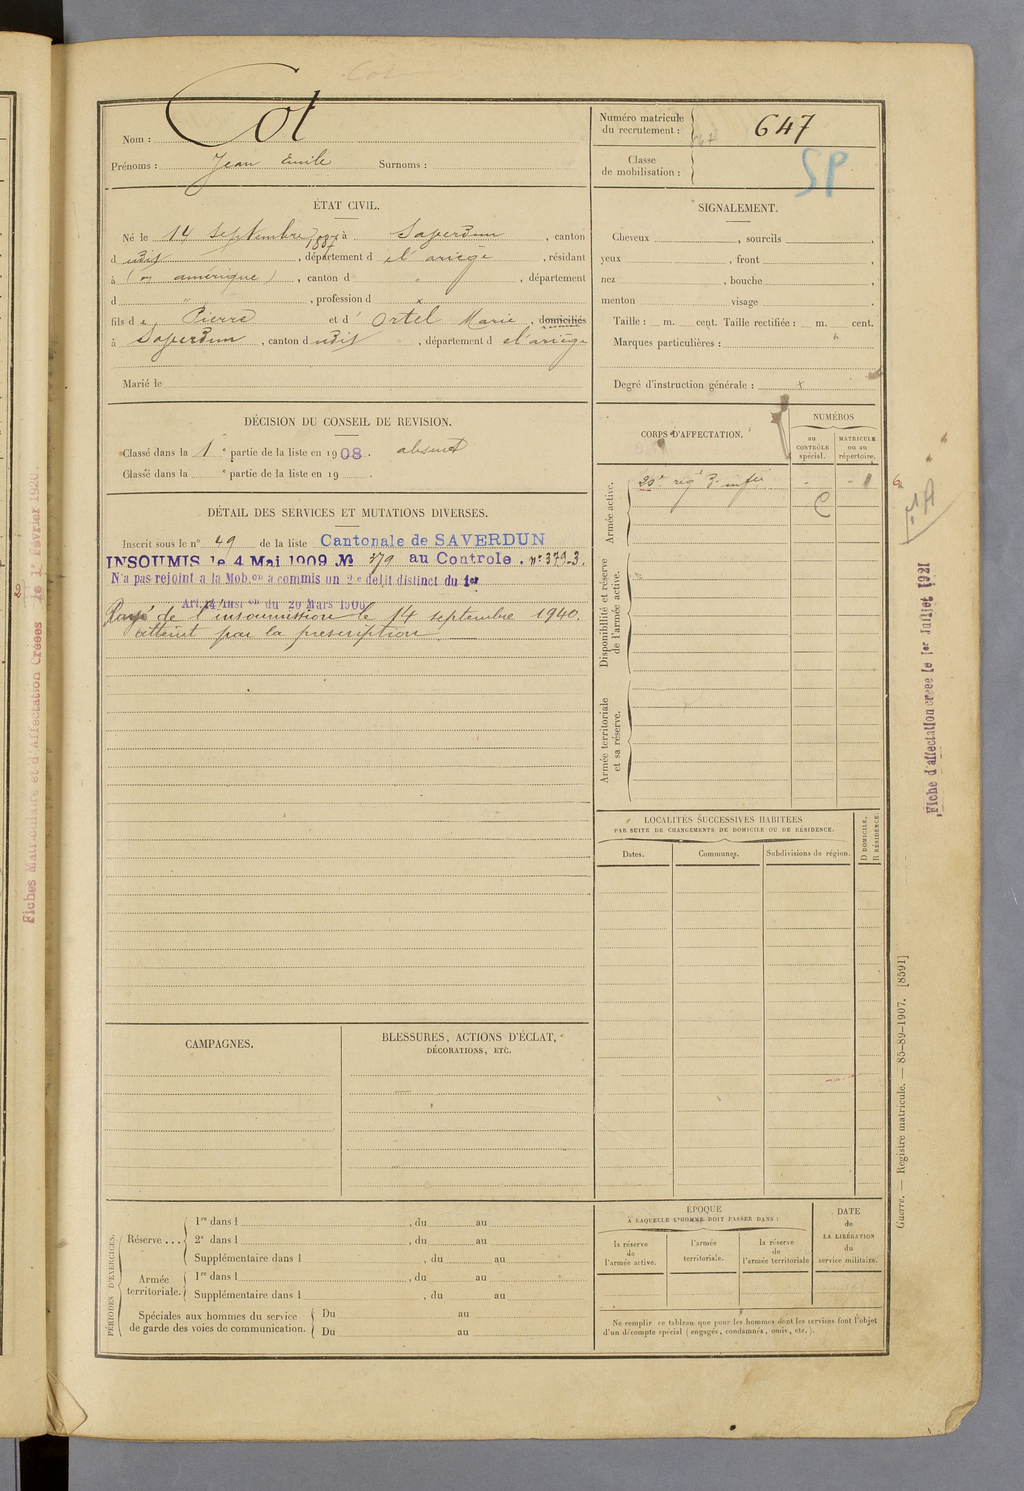 Cot
Nom : Cot
Prénoms : Jean Emile Surnoms :
Numéro matricule
du recrutement : 647
Classe
de mobilisation :
SP
ÉTAT CIVIL.
Né le 14 septembre 1887 à Saverdun , canton
d udit , département d e l'ariège , résidant
à (en amérique) , canton d " , département
d " , profession d x
fils de Pierre et d' Ortel Marie , domiciliés
à Saverdun , canton d udit , département d e l'ariège
Marié le
SIGNALEMENT.
Cheveux , sourcils ,
yeux , front ,
nez , bouche ,
menton visage .
Taille : m. cent. Taille rectifiée : m. cent.
Marques particulières :
Degré d'instruction générale : x
DÉCISION DU CONSEIL DE REVISION.
Classé dans la 1e partie de la liste en 1908. absent
Classé dans la e partie de la liste en 19 .
DÉTAIL DES SERVICES ET MUTATIONS DIVERSES.
Inscrit sous le n° 49 de la liste Cantonale de SAVERDUN
INSOUMIS le 4 Mai 1909 No 379 au Controle . n° 379-3.
N'a pas rejoint a la Mob.on a commis un 2e delit distinct du 1er
Rayé de l'insoumission le 14 septembre 1940.
atteint par la prescription.
CORPS D'AFFECTATION.
NUMÉROS
au
CONTRÔLE
spécial.
MATRICULE
ou au
répertoire.
Armée active.
20e reg t d'infie
Disponibilité et réserve
de l'armée active.
Armée territoriale
et sa réserve.
LOCALITÉS SUCCESSIVES HABITÉES
PAR SUITE DE CHANGEMENTS DE DOMICILE OU DE RÉSIDENCE.
Dates.
Communes.
Subdivisions de région.
D DOMICILE.
R RÉSIDENCE.
CAMPAGNES.
BLESSURES, ACTIONS D'ÉCLAT,
DÉCORATIONS, ETC.
PÉRIODES D'EXERCICES.
Réserve ...
1re dans l , du au
2e dans l , du au
Supplémentaire dans l , du au
Armée
territoriale.
1re dans l , du au
Supplémentaire dans l , du au
Spéciales aux hommes du service
de garde des voies de communication.
Du au
Du au
ÉPOQUE
À LAQUELLE L'HOMME DOIT PASSER DANS :
la réserve
de
l'armée active.
l'armée
territoriale.
la réserve
de
l'armée territoriale
DATE
de
LA LIBÉRATION
du
service militaire.
Ne remplir ce tableau que pour les hommes dont les services font l'objet
d'un décompte spécial (engagés, condamnés, omis, etc.).
Fiche d'affectation créée le 1er Juillet 1921
Guerre. — Registre matricule. — 85-89-1907. [8591]
Fiches Matriculaire et d'Affectation Créées le 1r Février 1920.